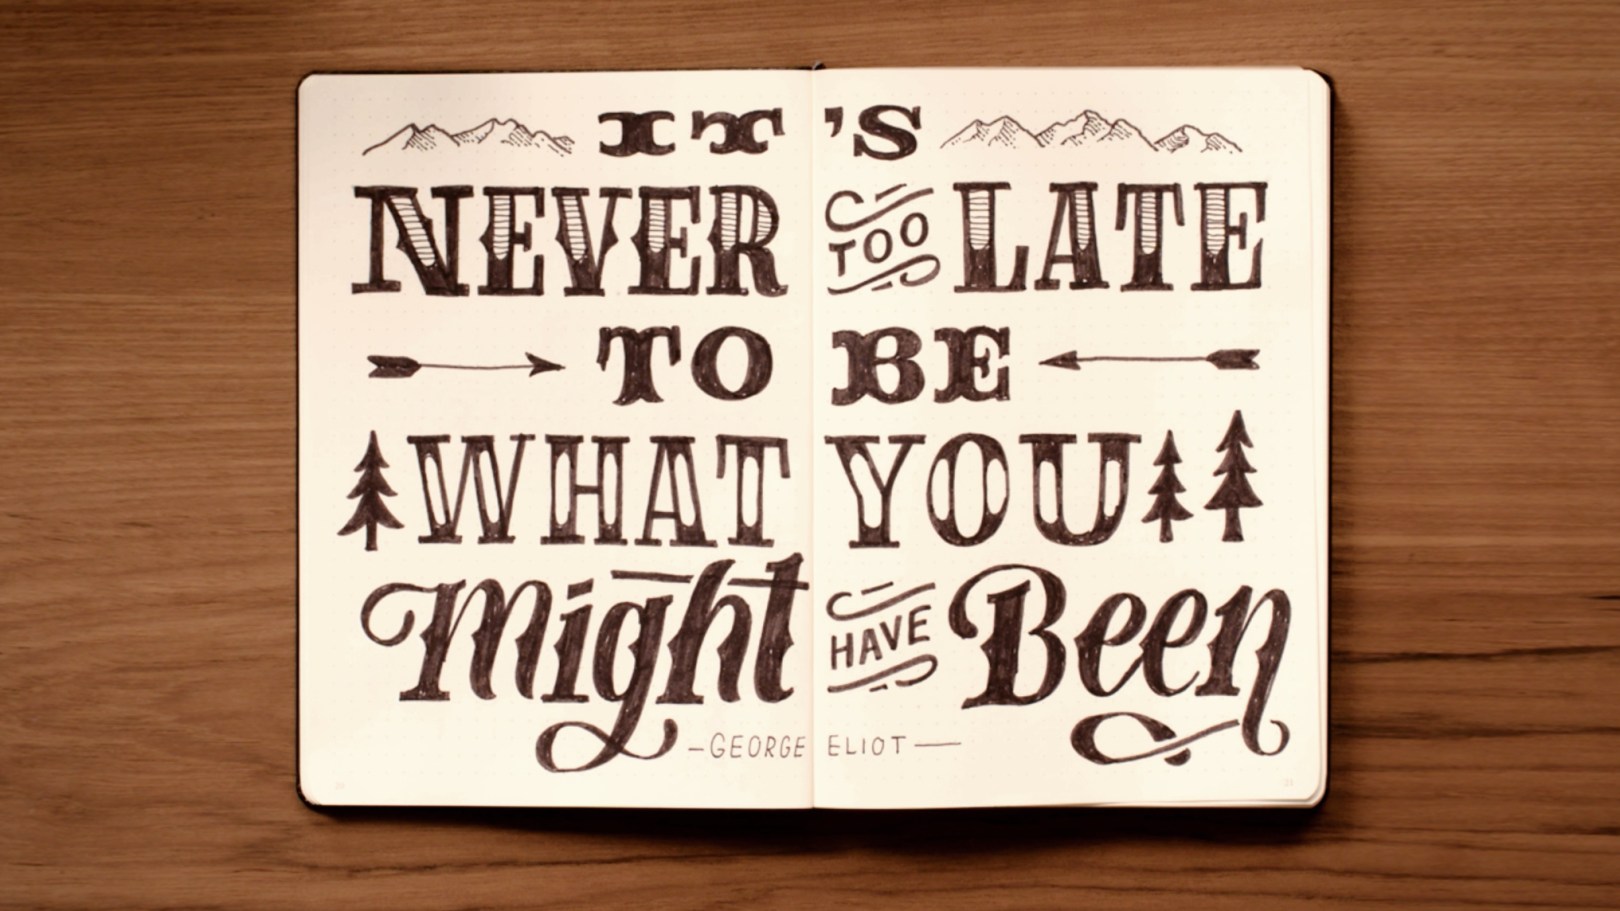 IT'S
NEVER TOO LATE
TO BE
WHAT YOU
Might HAVE Been
-GEORGE ELIOT-